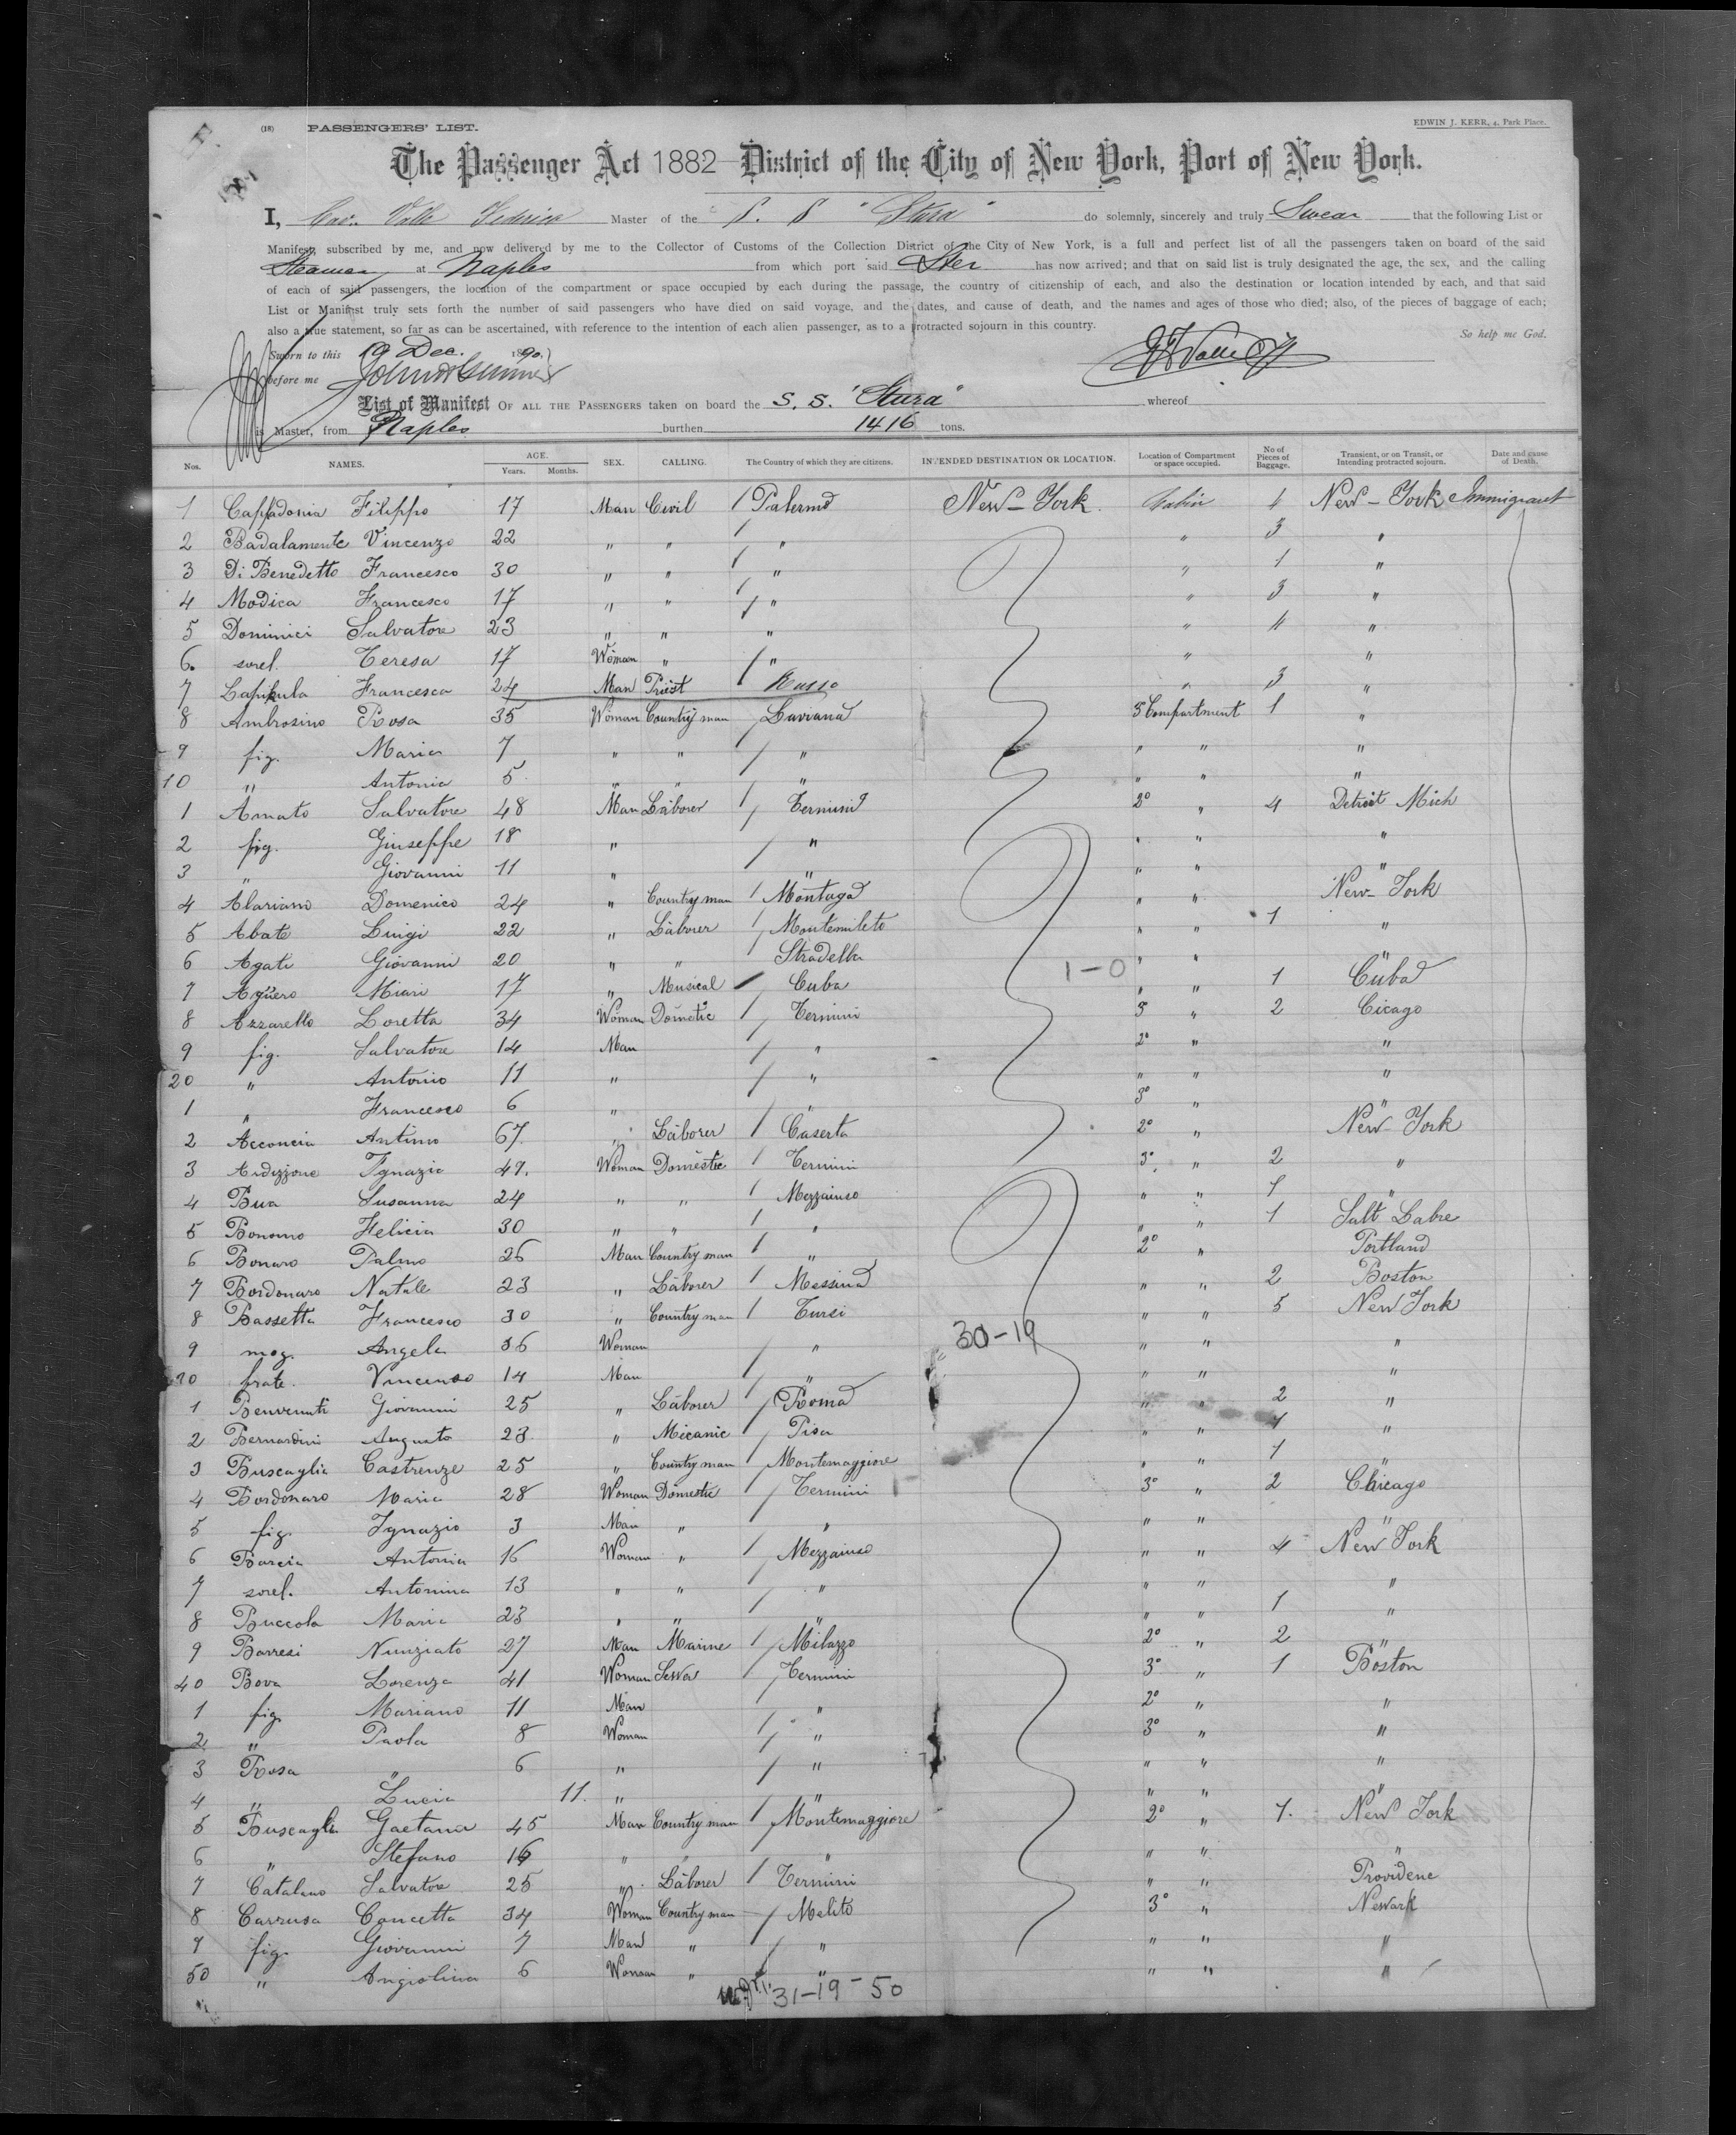 (18) PASSENGERS' LIST. EDWIN J. KERR, 4, Park Place.
The Passenger Act 1882 District of the City of New York, Port of New York.
I, Cav. Valle Federico Master of the S. S "Stura" do solemnly, sincerely and truly Swear that the following List or
Manifest, subscribed by me, and now delivered by me to the Collector of Customs of the Collection District of the City of New York, is a full and perfect list of all the passengers taken on board of the said
Steamer at Naples from which port said Ster has now arrived; and that on said list is truly designated the age, the sex, and the calling
of each of said passengers, the location of the compartment or space occupied by each during the passage, the country of citizenship of each, and also the destination or location intended by each, and that said
List or Manifest truly sets forth the number of said passengers who have died on said voyage, and the dates, and cause of death, and the names and ages of those who died; also, of the pieces of baggage of each;
also a true statement, so far as can be ascertained, with reference to the intention of each alien passenger, as to a protracted sojourn in this country. So help me God.
Sworn to this 19 Dec. 1890.
before me
List of Manifest OF ALL THE PASSENGERS taken on board the S. S. "Stura" whereof
is Master, from Naples burthen 1416 tons.
Nos. NAMES. AGE. Years. Months. SEX. CALLING. The Country of which they are citizens. INTENDED DESTINATION OR LOCATION. Location of Compartment or space occupied. No of Pieces of Baggage. Transient, or on Transit, or Intending protracted sojourn. Date and cause of Death.
1 Cappadonia Filippo 17 Man Civil / Palermo New-York. Cabin 4 New-York Immigrant
2 Badalamente Vincenzo 22 " " / " " 3 "
3 Di Benedetto Francesco 30 " " / " " 1 "
4 Modica Francesco 17 " " / " " 3 "
5 Dominici Salvatore 23 " " " " 4 "
6. sorel. Teresa 17 Woman " / " " "
7 Francesco 24 Man Priest / Russo " 3 "
8 Ambrosino Rosa 35 Woman Country man / Laviana 3 Compartment 1 "
9 fig. Maria 7 " " / " " " "
10 " Antonia 5 " " " " " "
1 Amato Salvatore 48 Man Laborer / Termini 2º " 4 Detroit Mich
2 fig. Giuseppe 18 " / " " " "
3 " Giovanni 11 " " " " "
4 Alariano Domenico 24 " Country man / Montaga " " New-York
5 Abate Luigi 22 " Laborer / Montemileto " " 1 "
6 Agati Giovanni 20 " " Stradella " " "
7 Agüero Miari 17 " Musical / Cuba 1-0 " " 1 Cuba
8 Azzarello Loretta 34 Woman Dometic / Termini 3 " 2 Cicago
9 fig. Salvatore 14 Man / " 2º " "
20 " Antonio 11 " / " " " "
1 " Francesco 6 " " 3º " "
2 Acconcia Antimo 67. " Laborer / Caserta 2º " New-York
3 Ardizzone Ignazia 47. Woman Domestic / Termini 3º " 2 "
4 Bua Susanna 24 " " / Mezzaiuso " " 1 "
5 Bonomo Felicia 30 " " / " " " 1 Salt Labre
6 Bonaro Palmo 26 Man Country man / " 2º " Portland
7 Bordonaro Natale 23 " Laborer / Messina " " 2 Boston
8 Bassetta Francesco 30 " Country man / Tursi " " 5 New York
9 mog. Angela 36 Woman / " 30-19 " " "
30 frate. Vincenzo 14 Man / " " " "
1 Benvenuti Giovanni 25 " Laborer / Roma " " 2 "
2 Bernardini Augusto 23. " Mecanic / Pisa " " 1 "
3 Buscaglia Castrenze 25 " Country man / Montemaggiore " " 1 "
4 Bordonaro Maria 28 Woman Domestic / Termini 3º " 2 Chicago
5 fig. Ignazio 3 Man " " " " "
6 Barcia Antonia 16 Woman " / Mezzaiuso " " 4 New York
7 sorel. Antonina 13 " " / " " " "
8 Buccola Maria 23 " " / " " " 1 "
9 Barresi Nunziato 27 Man Marine / Milazzo 2º " 2 "
40 Bova Lorenza 41 Woman Serva / Termini 3º " 1 Boston
1 fig. Mariano 11 Man / " 2º " "
2 " Paola 8 Woman / " 3º " "
3 Rosa " 6 " / " " " "
4 " Lucia 11. " " " " "
5 Buscaglia Gaetano 45 Man Country man / Montemaggiore 2º " 1. New York
6 " Stefano 16 " " " " " "
7 Catalano Salvatore 25 " Laborer / Termini " " Providenc
8 Carrusa Concetta 34 Woman Country man / Melito 3º " Newark
9 fig. Giovanni 7 Man " / " " " "
50 " Angiolina 6 Woman " / " " " "
31-19-50